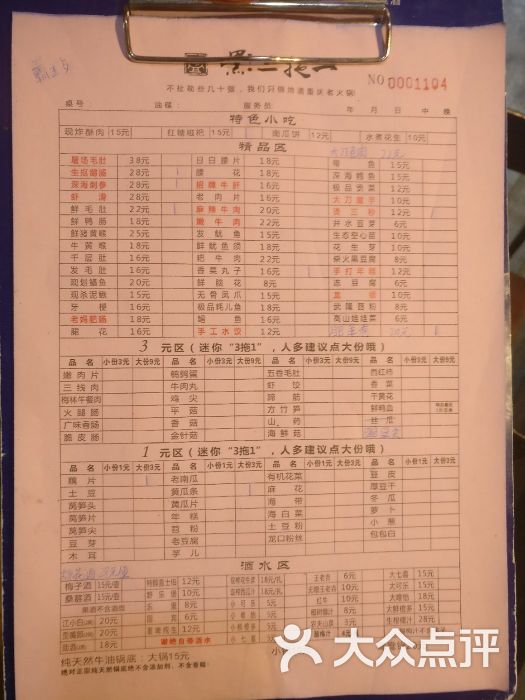 NO 0001104
不扯勒些几十强，我们只做地道重庆老火锅!
桌号 油碟: 服务员: 年 月 日 中 晚
特色小吃
现炸酥肉 15元 红糖糍粑 15元 1 南瓜饼 12元 水煮花生 10元
精品区
屠场毛肚 38元 白白腰片 18元
生抠鹅肠 28元 腰花 18元 深海鳕鱼 15元
深海刺参 38元 1 招牌牛肝 16元 极品贡菜 12元
虾滑 28元 老肉片 16元 大刀魔芋 10元
鲜毛肚 22元 1 麻辣牛肉 20元 苕三粉 12元
鲜鸭肠 18元 嫩牛肉 22元 井水豆芽 6元
鲜猪黄喉 25元 发鱿鱼 15元 生态空心苗 10元
牛黄喉 18元 鲜鱿鱼须 18元 花生芽 10元
千层肚 16元 粑牛肉 22元 柴火黑豆腐 8元
发毛肚 16元 香菜丸子 16元 1 手打年糕 12元
现划鳝鱼 20元 鲜脑花 8元 冻豆腐 6元
现杀泥鳅 15元 无骨凤爪 15元 10元
牙梗 16元 极品耗儿鱼 18元 武隆苕粉 8元
老妈肥肠 18元 鲳鱼 16元 高山娃娃菜 6元
腊花 16元 手工水饺 12元
3 元区（迷你“3拖1”，人多建议点大份哦）
品名 小份3元 大份9元 品名 小份3元 大份9元 品名 小份3元 大份9元 品名 小份3元 大份9元
嫩肉片 鹌鹑蛋 五香毛肚 西红柿
三线肉 牛肉丸 虾饺 香菜
梅林午餐肉 鸡尖 蹄筋 干黄花
火腿肠 平菇 方竹笋 鲜鸭血
广味香肠 香菇 山药 丝瓜
脆皮肠 金针菇 海鲜菇
1 元区（迷你“3拖1”，人多建议点大份哦）
品名 小份1元 大份3元 品名 小份1元 大份3元 品名 小份1元 大份3元 品名 小份1元 大份3元
藕片 1 老南瓜 有机花菜 豆皮
土豆 黄瓜条 1 麻花 厚豆干
莴笋头 黄瓜片 海带 冬瓜
莴笋片 年糕 海白菜 萝卜
莴笋尖 苕粉 土豆粉 小葱
豆芽 老豆腐 龙口粉丝 包包白
木耳 芋儿
酒水区
梅子酒 15元/壶 12元 18元/扎 王老吉 6元 大七喜 15元
桑葚酒 15元/壶 12元 18元/扎 10元 大可乐 15元
果酒不含酒瓶 乐堡 8元 小可乐 5元 红牛 10元 大雪碧 18元
江小白 20元 10元 小雪碧 5元 8元 大鲜橙多 15元
歪嘴郎 20元 15元 5元 农夫山泉 3元 28元
劲酒 18元 谢绝自带酒水 小七喜 5元 4元
纯天然牛油锅底：大锅15元
绝对正宗纯天然锅底绝不含添加剂，不含香精!
大众点评